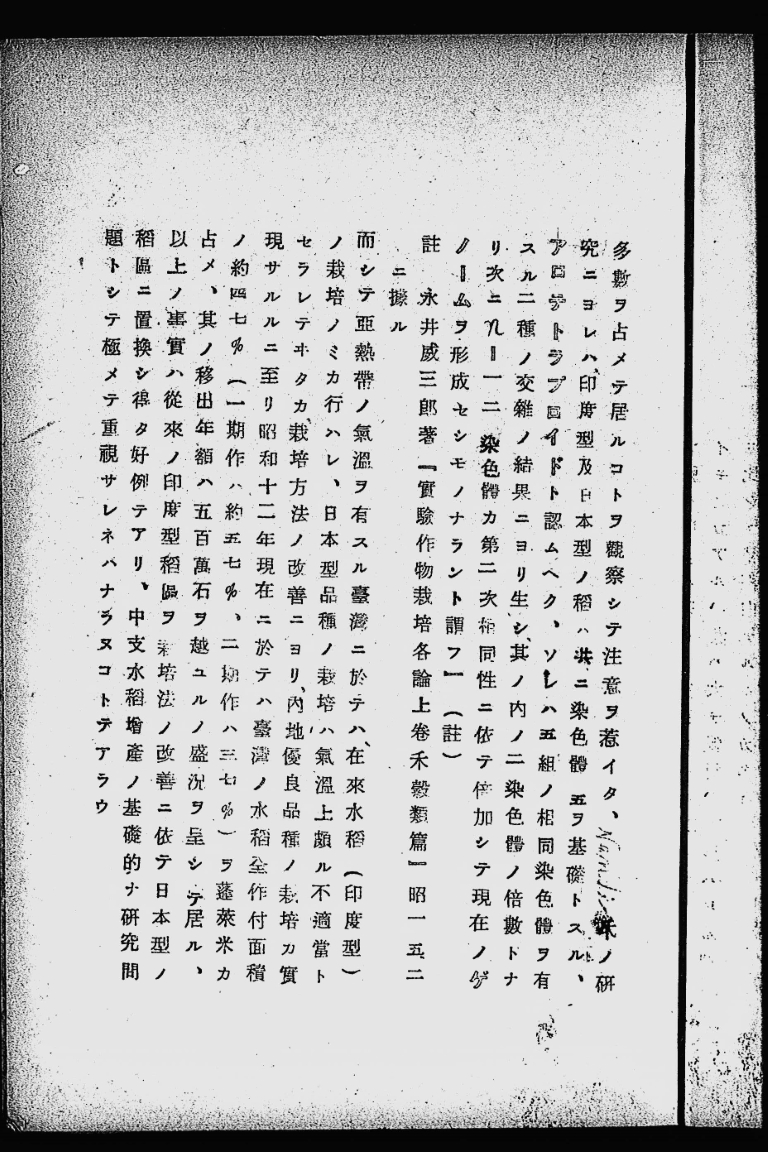 多數ヲ占メテ居ルコトヲ觀察シテ注意ヲ惹イタ、Nandi氏ノ研
究ニヨレハ、印度型及日本型ノ稻ハ共ニ染色體五ヲ基礎トスル、
アロテトラプロイドト認ムヘク、ソレハ五組ノ相同染色體ヲ有
スル二種ノ交雜ノ結果ニヨリ生シ、其ノ内ノ二染色體ノ倍數トナ
リ次ニn=一二染色體カ第二次相同性ニ依テ倍加シテ現在ノゲ
ノームヲ形成セシモノナラント謂フ」(註)
註 永井威三郎著『實驗作物栽培各論上卷禾穀類篇』昭一五、二
ニ據ル
而シテ亞熱帶ノ氣溫ヲ有スル臺灣ニ於テハ、在來水稻(印度型)
ノ栽培ノミカ行ハレ、日本型品種ノ栽培ハ氣溫上頗ル不適當ト
セラレテヰタカ、栽培方法ノ改善ニヨリ、內地優良品種ノ栽培カ實
現サルルニ至リ昭和十二年現在ニ於テハ臺灣ノ水稻全作付面積
ノ約四七%(一期作ハ約五七%、二期作ハ三七%)ヲ蓬萊米カ
占メ、其ノ移出年額ハ五百萬石ヲ越ユルノ盛況ヲ呈シテ居ル、
以上ノ事實ハ從來ノ印度型稻區ヲ栽培法ノ改善ニ依テ日本型ノ
稻區ニ置換シ得タ好例テアリ、中支水稻增產ノ基礎的ナ研究問
題トシテ極メテ重視サレネハナラヌコトテアラウ